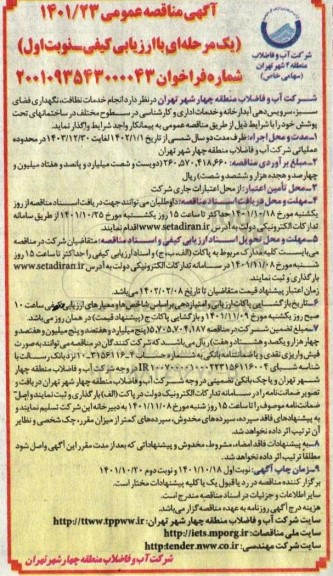 آگهی مناقصه عمومی ۱۴۰۱/۲۳
(یک مرحله‌ای با ارزیابی کیفی - نوبت اول)
شماره فراخوان ۲۰۰۱۰۹۳۵۴۳۰۰۰۰۴۳
شرکت آب و فاضلاب
منطقه ۴ شهر تهران
(سهامی خاص)
شرکت آب و فاضلاب منطقه چهار شهر تهران در نظر دارد انجام خدمات نظافت، نگهداری فضای
سبز، سرویس‌دهی آبدارخانه و خدمات اداری و کارشناسی در سطوح مختلف در ساختمانهای تحت
پوشش خود را با شرایط ذیل از طریق مناقصه عمومی به پیمانکار واجد شرایط واگذار نماید.
۱-مدت و محل اجرا: ظرف مدت دو سال شمسی از تاریخ ۱۴۰۲/۱/۱ لغایت ۱۴۰۳/۱۲/۳۰ در محدوده
عملیاتی شرکت آب و فاضلاب منطقه چهار شهر تهران
۲-مبلغ برآوردی مناقصه: ۲۶۰،۵۷۰،۴۱۸،۶۶۰ (دویست و شصت میلیارد و پانصد و هفتاد میلیون و
چهارصد و هجده هزار و ششصد و شصت) ریال
۳-محل تأمین اعتبار: از محل اعتبارات جاری شرکت
۴-مهلت و محل دریافت اسناد مناقصه: داوطلبان می‌توانند جهت دریافت اسناد مناقصه از روز
یکشنبه مورخ ۱۴۰۱/۱۰/۱۸ حداکثر تا ساعت ۱۵ روز یکشنبه مورخ ۱۴۰۱/۱۰/۲۵ از طریق سامانه
تدارکات الکترونیکی دولت به آدرس www.setadiran.ir اقدام نمایند.
۵-مهلت و محل تحویل اسناد ارزیابی کیفی و اسناد مناقصه: متقاضیان شرکت در مناقصه
می‌بایست کلیه مدارک مربوط به پاکات (الف، ب، ج) و اسناد ارزیابی کیفی را حداکثر تا ساعت ۱۵ روز
شنبه مورخ ۱۴۰۱/۱۱/۰۸ در سامانه تدارکات الکترونیکی دولت به آدرس www.setadiran.ir
بارگذاری و ثبت نمایند.
زمان اعتبار پیشنهاد قیمت متقاضیان تا تاریخ ۱۴۰۲/۰۲/۰۸ می‌باشد.
۶-تاریخ بازگشایی پاکات ارزیابی و امتیازدهی براساس شاخص‌ها و معیارهای ارزیابی کیفی ساعت ۱۰
صبح روز یکشنبه مورخ ۱۴۰۱/۱۱/۰۹ و بازگشایی پاکات ج (پیشنهاد قیمت) در همان روز می‌باشد.
۷-مبلغ تضمین شرکت در مناقصه ۵،۷۰۵،۷۰۴،۱۸۷ (پنج میلیارد و هفتصد و پنج میلیون و هفتصد و
چهار هزار و یکصد و هشتاد و هفت) ریال می‌باشد که شرکت کنندگان در مناقصه می‌توانند به صورت
فیش واریزی نقدی و یا ضمانتنامه بانکی به شماره حساب نزد بانک رسالت با
شناسه شبای در وجه شرکت آب و فاضلاب منطقه چهار
شهر تهران و یا چک بانکی تضمینی در وجه شرکت آب و فاضلاب منطقه چهار شهر تهران دریافت و
تصویر ضمانت‌نامه را در سامانه تدارکات الکترونیک دولت در پاکت (الف) بارگذاری و ثبت نمایند و اصل
ضمانت‌نامه موصوف را تا ساعت ۱۵ روز شنبه مورخ ۱۴۰۱/۱۱/۰۸ به دبیرخانه این شرکت تسلیم نمایند و
به پیشنهادهای فاقد سپرده، سپرده‌های مخدوش، سپرده‌های کمتر از میزان مقرر، چک شخصی و نظایر
آن ترتیب اثر داده نخواهد شد.
۸-به پیشنهادات فاقد امضاء، مشروط، مخدوش و پیشنهاداتی که بعد از مدت مقرر این آگهی واصل شود
مطلقاً ترتیب اثر داده نخواهد شد.
۹-زمان چاپ آگهی: نوبت اول ۱۴۰۱/۱۰/۱۸ و نوبت دوم ۱۴۰۱/۱۰/۲۰
برگزار کننده مناقصه در رد یا قبول یک یا کلیه پیشنهادات مختار است.
سایر اطلاعات و جزئیات در اسناد مناقصه مندرج است.
هزینه درج آگهی روزنامه به عهده مناقصه گزار می‌باشد.
سایت شرکت آب و فاضلاب منطقه چهار شهر تهران: http://ttww.tppww.ir
سایت ملی مناقصات: http://iets.mporg.ir
سایت شرکت مهندسی: http:tender.nww.co.ir
شرکت آب و فاضلاب منطقه چهار شهر تهران